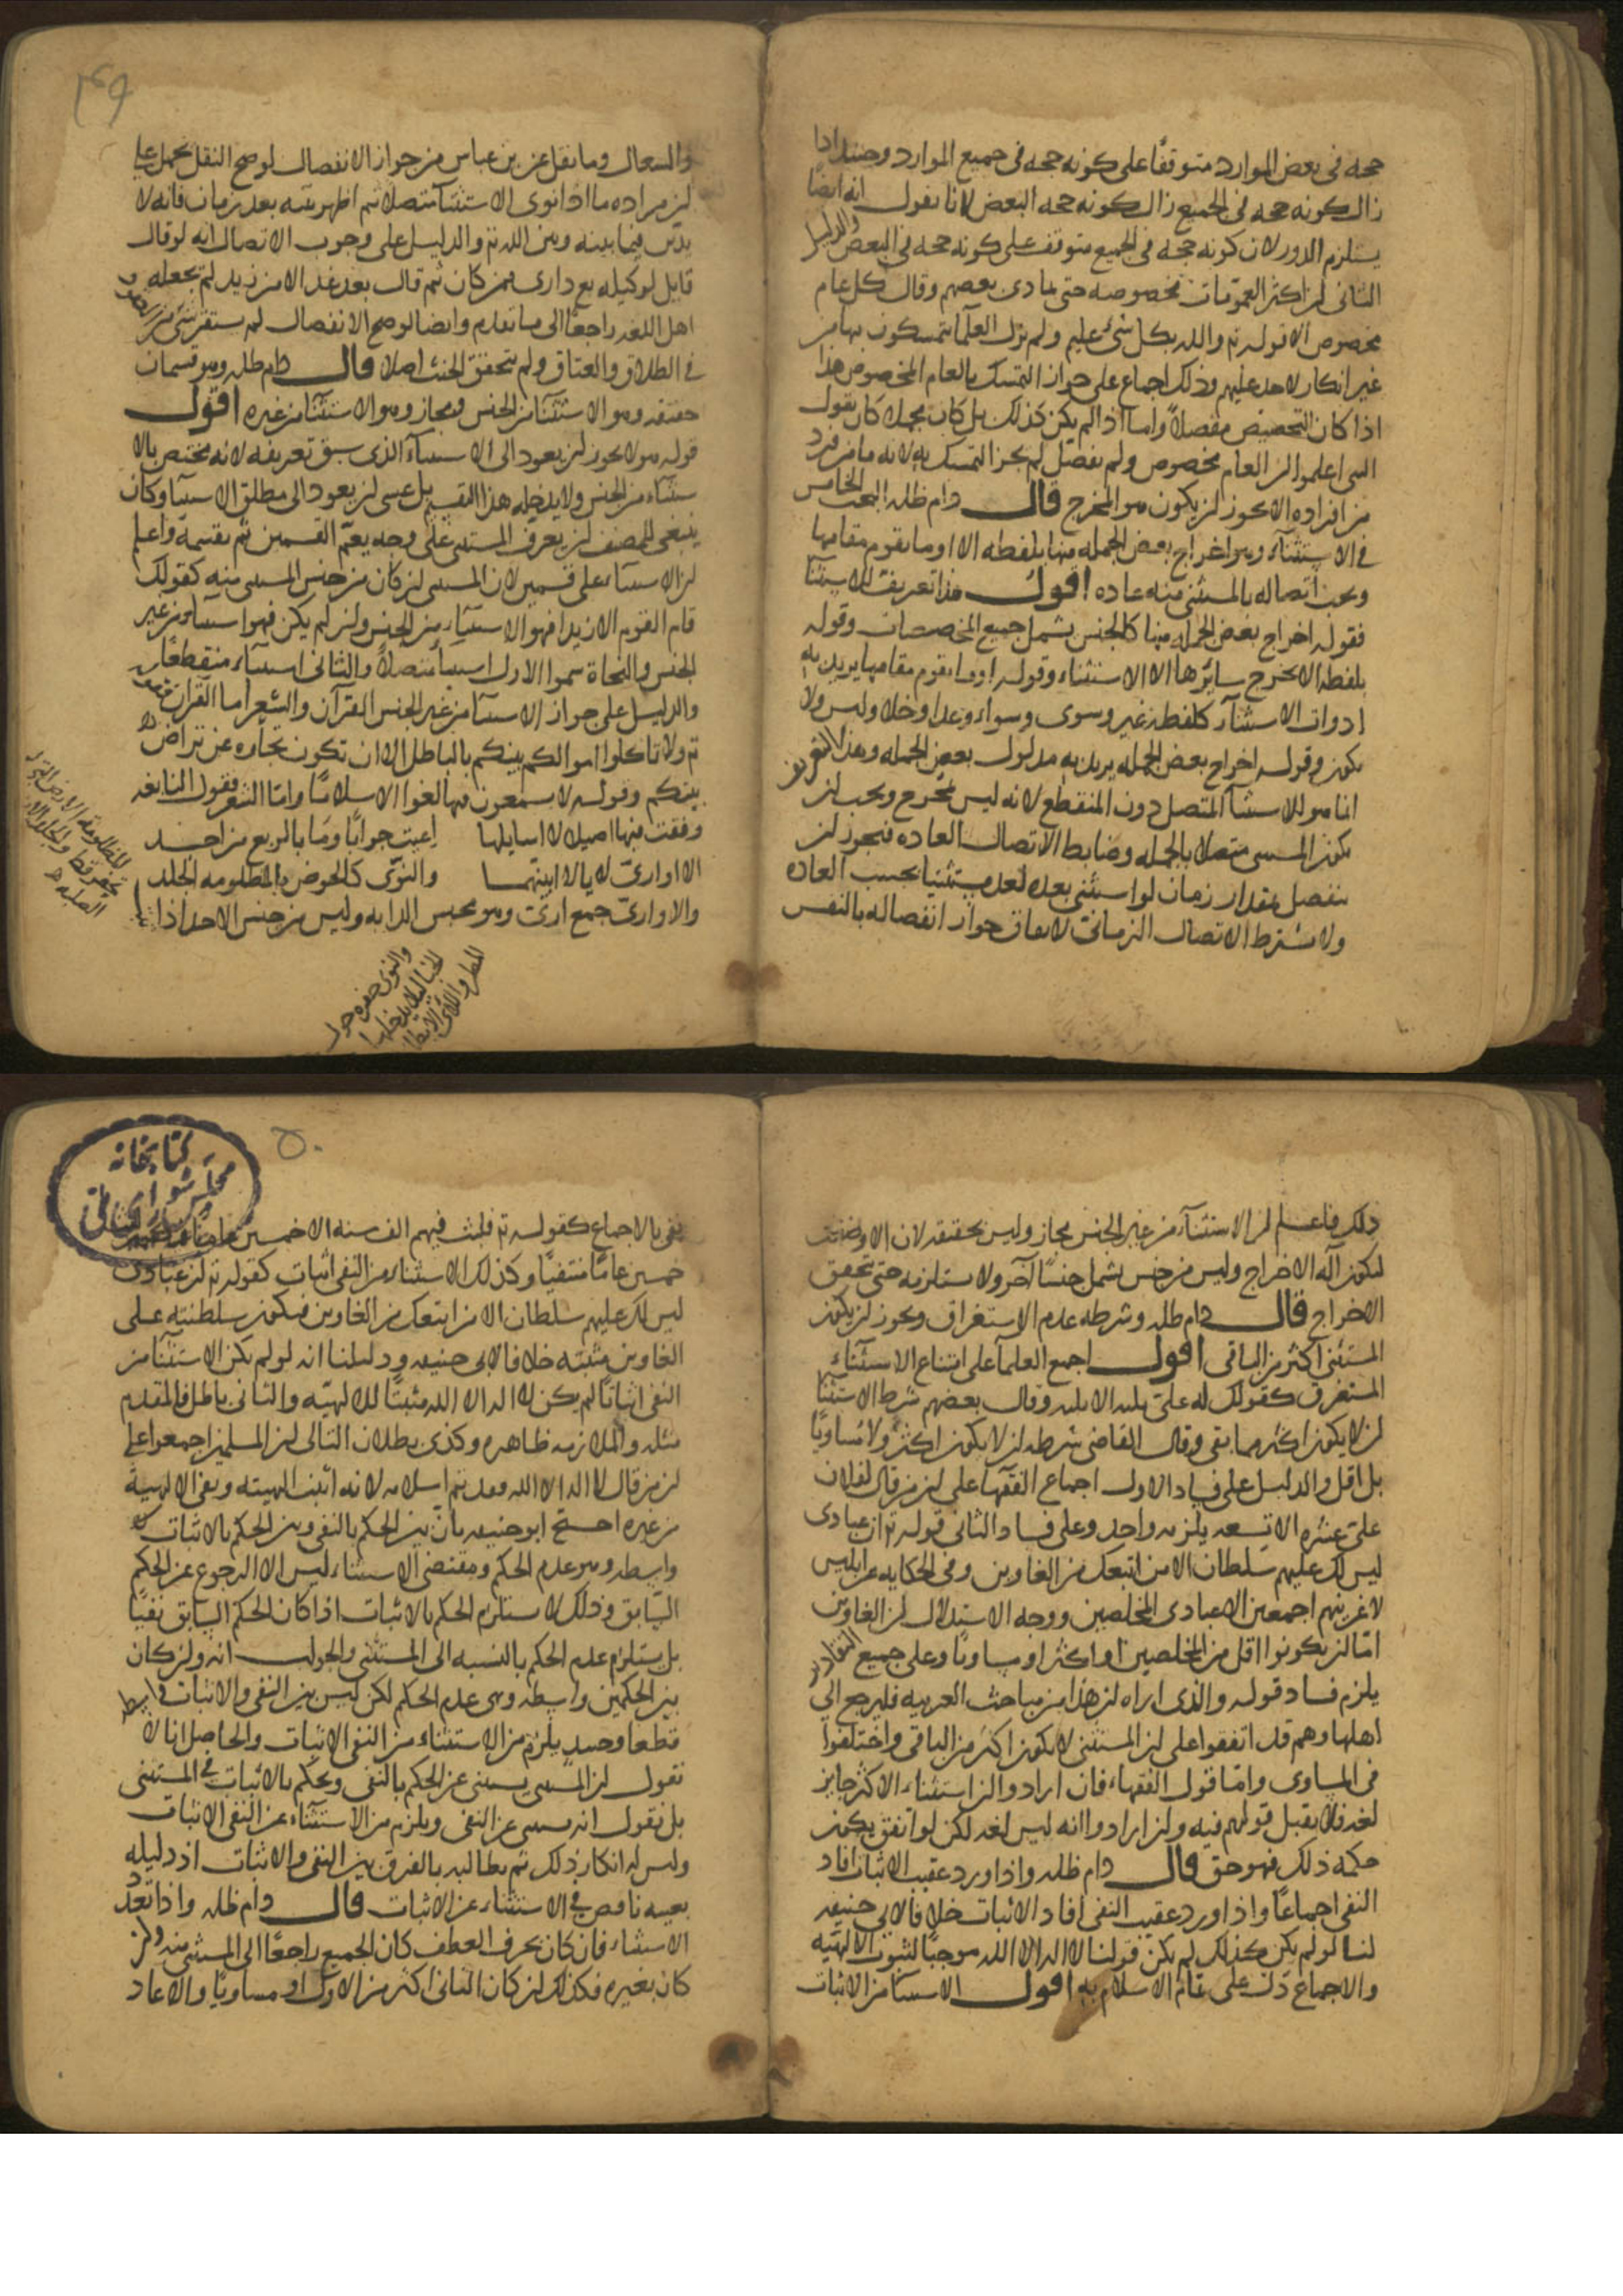 حجه فى بعض الموارد متوقفًا على كونه حجه فى جميع الموارد وحينئذ اذا
زال كونه حجه فى الجميع زال كونه حجه البعض لانا نقول انه ايضا
يستلزم الدور لان كونه حجه فى الجميع متوقف على كونه حجه فى البعض والدليل
الثانى لن اكثر العمومات مخصوصه حتى تمادى بعضهم وقال كل عام
مخصوص الا قوله تع والله بكل شىء عليم ولم تزل العلما يتمسكون بها من
غير انكار لاحد عليهم وذلك اجماع على جواز التمسك بالعام المخصوص هذا
اذا كان التخصيص مفصلا واما اذا لم يكن كذلك بل كان مجملا كان يقول
النبى اعلموا لن العام مخصوص ولم يفصل لم يجز التمسك به لانه ما من فرد
من افراده الا يجوز لن يكون هو المخرج قال دام ظله البحث الخامس
فى الاستثناء وهو اخراج بعض الجمله منها بلفظه الا او ما يقوم مقامها
ويجب اتصاله بالمستثنى منه عاده اقول هذا تعريف للاستثنا
فقوله اخراج بعض الجمله منها كالجنس يشمل جميع المخصصات وقوله
بلفظه الا يخرج سائرها الا الاستثناء وقوله او ما يقوم مقامها يريد به
ادوات الاستثنآء كلفظة غير وسوى وسواء وعدا وخلا وليس ولا
يكون وقوله اخراج بعض الجمله يريد به مدلول بعض الجمله وهذا التعريف
انما هو للاستثنا المتصل دون المنقطع لانه ليس مخرج ويجب لن
يكون المستثنى متصلا بالجمله وضابط الاتصال العاده فيجوز لن
ينفصل بمقدار زمان لو استثنى بعده لعد مستثنيا بحسب العاده
ولا يشترط الاتصال الزمانى لاتفاق جواز انفصاله بالنفس
٤٩
والسعال وما نقل عن بن عباس من جواز الانفصال لو صح النقل يحمل على
لن مراده ما اذا نوى الاستثنآ متصلا ثم اظهر نيته بعد زمان فانه لا
يدين فيما بينه وبين الله تع والدليل على وجوب الاتصال انه لو قال
قايل لوكيله بع دارى ممن كان ثم قال بعد غد الا من زيد لم يجعله
اهل اللغه راجعًا الى ما تقدم وايضا لو صح الانفصال لم يستقر شىء من العقود
فى الطلاق والعتاق ولم يتحقق الحنث اصلا قال دام ظله وهو قسمان
حقيقه وهو الاستثنآ من الجنس ومجاز وهو الاستثنآ من غيره اقول
قوله هو لا يجوز لن يعود الى الاستثنآء الذى سبق تعريفه لانه مختص بالا
ستثناء من الجنس ولا يدخله هذا التقسيم بل عسى لن يعود الى مطلق الاستثنآ وكان
ينبغى للمصنف لن يعرف المستثنى على وجه يعم القسمين ثم يقسمه واعلم
لن الاستثناء على قسمين لان المستثنى لن كان من جنس المستثنى منه كقولك
قام القوم الا زيدا فهو الاستثناء من الجنس ولن لم يكن فهو استثناء من غير
الجنس والنحاة سموا الاول استثنا متصلا والثانى استثناء منقطعًا
والدليل على جواز الاستثنآ من غير الجنس القرآن والشعر اما القرآن فقوله
تع ولا تاكلوا اموالكم بينكم بالباطل الا ان تكون تجارة عن تراض
بينكم وقوله لا يسمعون فيها لغوا الا سلامًا واما الشعر فقول النابغه
وقفت فيها اصيلا لا اسايلها اعيت جوابًا وما بالربع من احد
الا اوارى لايا لا ابينها والنوى كالحوض بالمظلومه الجلد
والاوارى جمع ارى وهو محبس الدابه وليس من جنس الاحد اذا
والنوى حفره حول
ذلك فاعلم لن الاستثنآء من غير الجنس مجاز وليس بحقيقه لان الا وضعت
لتكون آلة الاخراج وليس من جنس يشمل جنسًا آخر ولا يستلزمه حتى يتحقق
الاخراج قال دام ظله وشرطه عدم الاستغراق ويجوز لن يكون
المستثنى اكثر من الباقى اقول اجمع العلمآ على امتناع الاستثناء
المستغرق كقولك له على ثلثه الا ثلثه وقال بعضهم شرط الاستثنا
لن لا يكون اكثر مما بقى وقال القاضى شرطه لن لا يكون اكثر ولا مساويًا
بل اقل والدليل على فساد الاول اجماع الفقهآ على لن من قال لفلان
على عشره الا تسعه يلزمه واحد وعلى فساد الثانى قوله تع ان عبادى
ليس لك عليهم سلطان الا من اتبعك من الغاوين وفى الحكايه عن ابليس
لاغوينهم اجمعين الا عبادى المخلصين ووجه الاستدلال لن الغاوين
اما لن يكونوا اقل من المخلصين او اكثر او مساويًا وعلى جميع التقادير
يلزم فساد قوله والذى اراه لن هذا من مباحث العربيه فليرجع الى
اهلها وهم قد اتفقوا على لن المستثنى لا يكون اكثر من الباقى واختلفوا
فى المساوى واما قول الفقهاء فان ارادوا لن استثناء الاكثر جايز
لغه فلا يقبل قولهم فيه ولن ارادوا انه ليس لغه لكن لو اتفق يكون
حكمه ذلك فهو حق قال دام ظله واذا ورد عقيب الاثبات افاد
النفى اجماعًا واذا ورد عقيب النفى افاد الاثبات خلافا لابى حنيفه
لنا لو لم يكن كذلك لم يكن قولنا لا اله الا الله موجبًا لثبوت الالهيه
والاجماع دل على تمام الاسلام به اقول الاستثنا من الاثبات
٥٠
كتابخانه
مجلس شوراى ملى
نفى بالاجماع كقوله تع فلبث فيهم الف سنه الا خمسين عاما
خمسين عامًا منتفيًا وكذلك الاستثناء من النفى اثبات كقوله تع لن عبادى
ليس لك عليهم سلطان الا من اتبعك من الغاوين فيكون سلطنته على
الغاوين مثبته خلافا لابى حنيفه ودليلنا انه لو لم يكن الاستثنآ من
النفى اثباتًا لم يكن لا اله الا الله مثبتًا للالهيه والتالى باطل فالمقدم
مثله والملازمه ظاهره وكذى بطلان التالى لن المسلمين اجمعوا على
لن من قال لا اله الا الله فقد تم اسلامه لانه اثبت الهيته ونفى الالهية
من غيره احتج ابو حنيفه بان بين الحكم بالنفى وبين الحكم بالاثبات
واسطه وهو عدم الحكم ومقتضى الاستثناء ليس الا الرجوع عن الحكم
السابق وذلك لا يستلزم الحكم بالاثبات اذا كان الحكم السابق نفيًا
بل يستلزم عدم الحكم بالنسبه الى المستثنى والجواب انه ولن كان
بين الحكمين واسطه وهى عدم الحكم لكن ليس بين النفى والاثبات واسطه
قطعا وحينئذ يلزم من الاستثناء من النفى الاثبات والحاصل انا لا
نقول لن المستثنى يستثنى عن الحكم بالنفى ويحكم بالاثبات فى المستثنى
بل نقول انه يستثنى عن النفى ويلزم من الاستثناء عن النفى الاثبات
وليس له انكار ذلك ثم يطالبه بالفرق بين النفى والاثبات اذ دليله
بعينه ناهض فى الاستثناء عن الاثبات قال دام ظله واذا تعدد
الاستثناء فان كان بحرف العطف كان الجميع راجعًا الى المستثنى منه ولن
كان بغيره فكذلك لن كان الثانى اكثر من الاول او مساويًا والا عاد